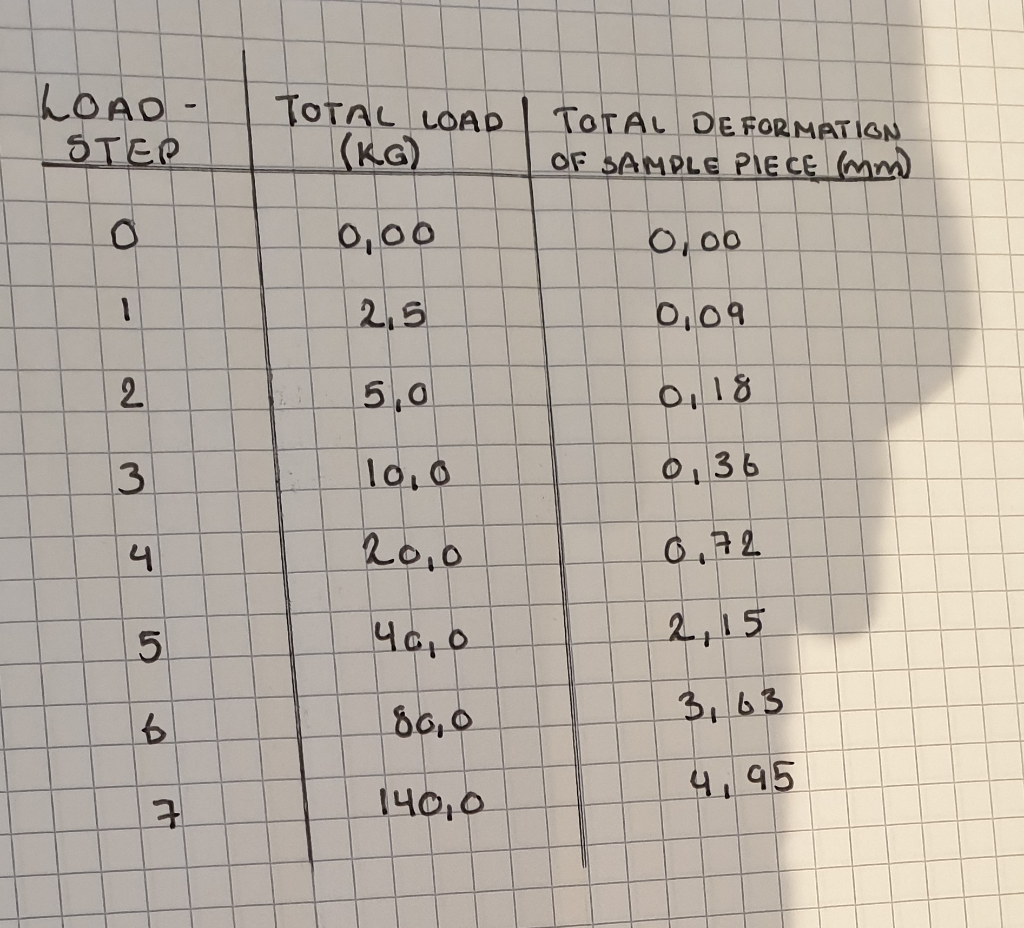 LOAD - TOTAL LOAD TOTAL DEFORMATION
STEP (KG) OF SAMPLE PIECE (mm)
0 0,00 0,00
1 2,5 0,09
2 5,0 0,18
3 10,0 0,36
4 20,0 0,72
5 40,0 2,15
6 80,0 3,63
7 140,0 4,95